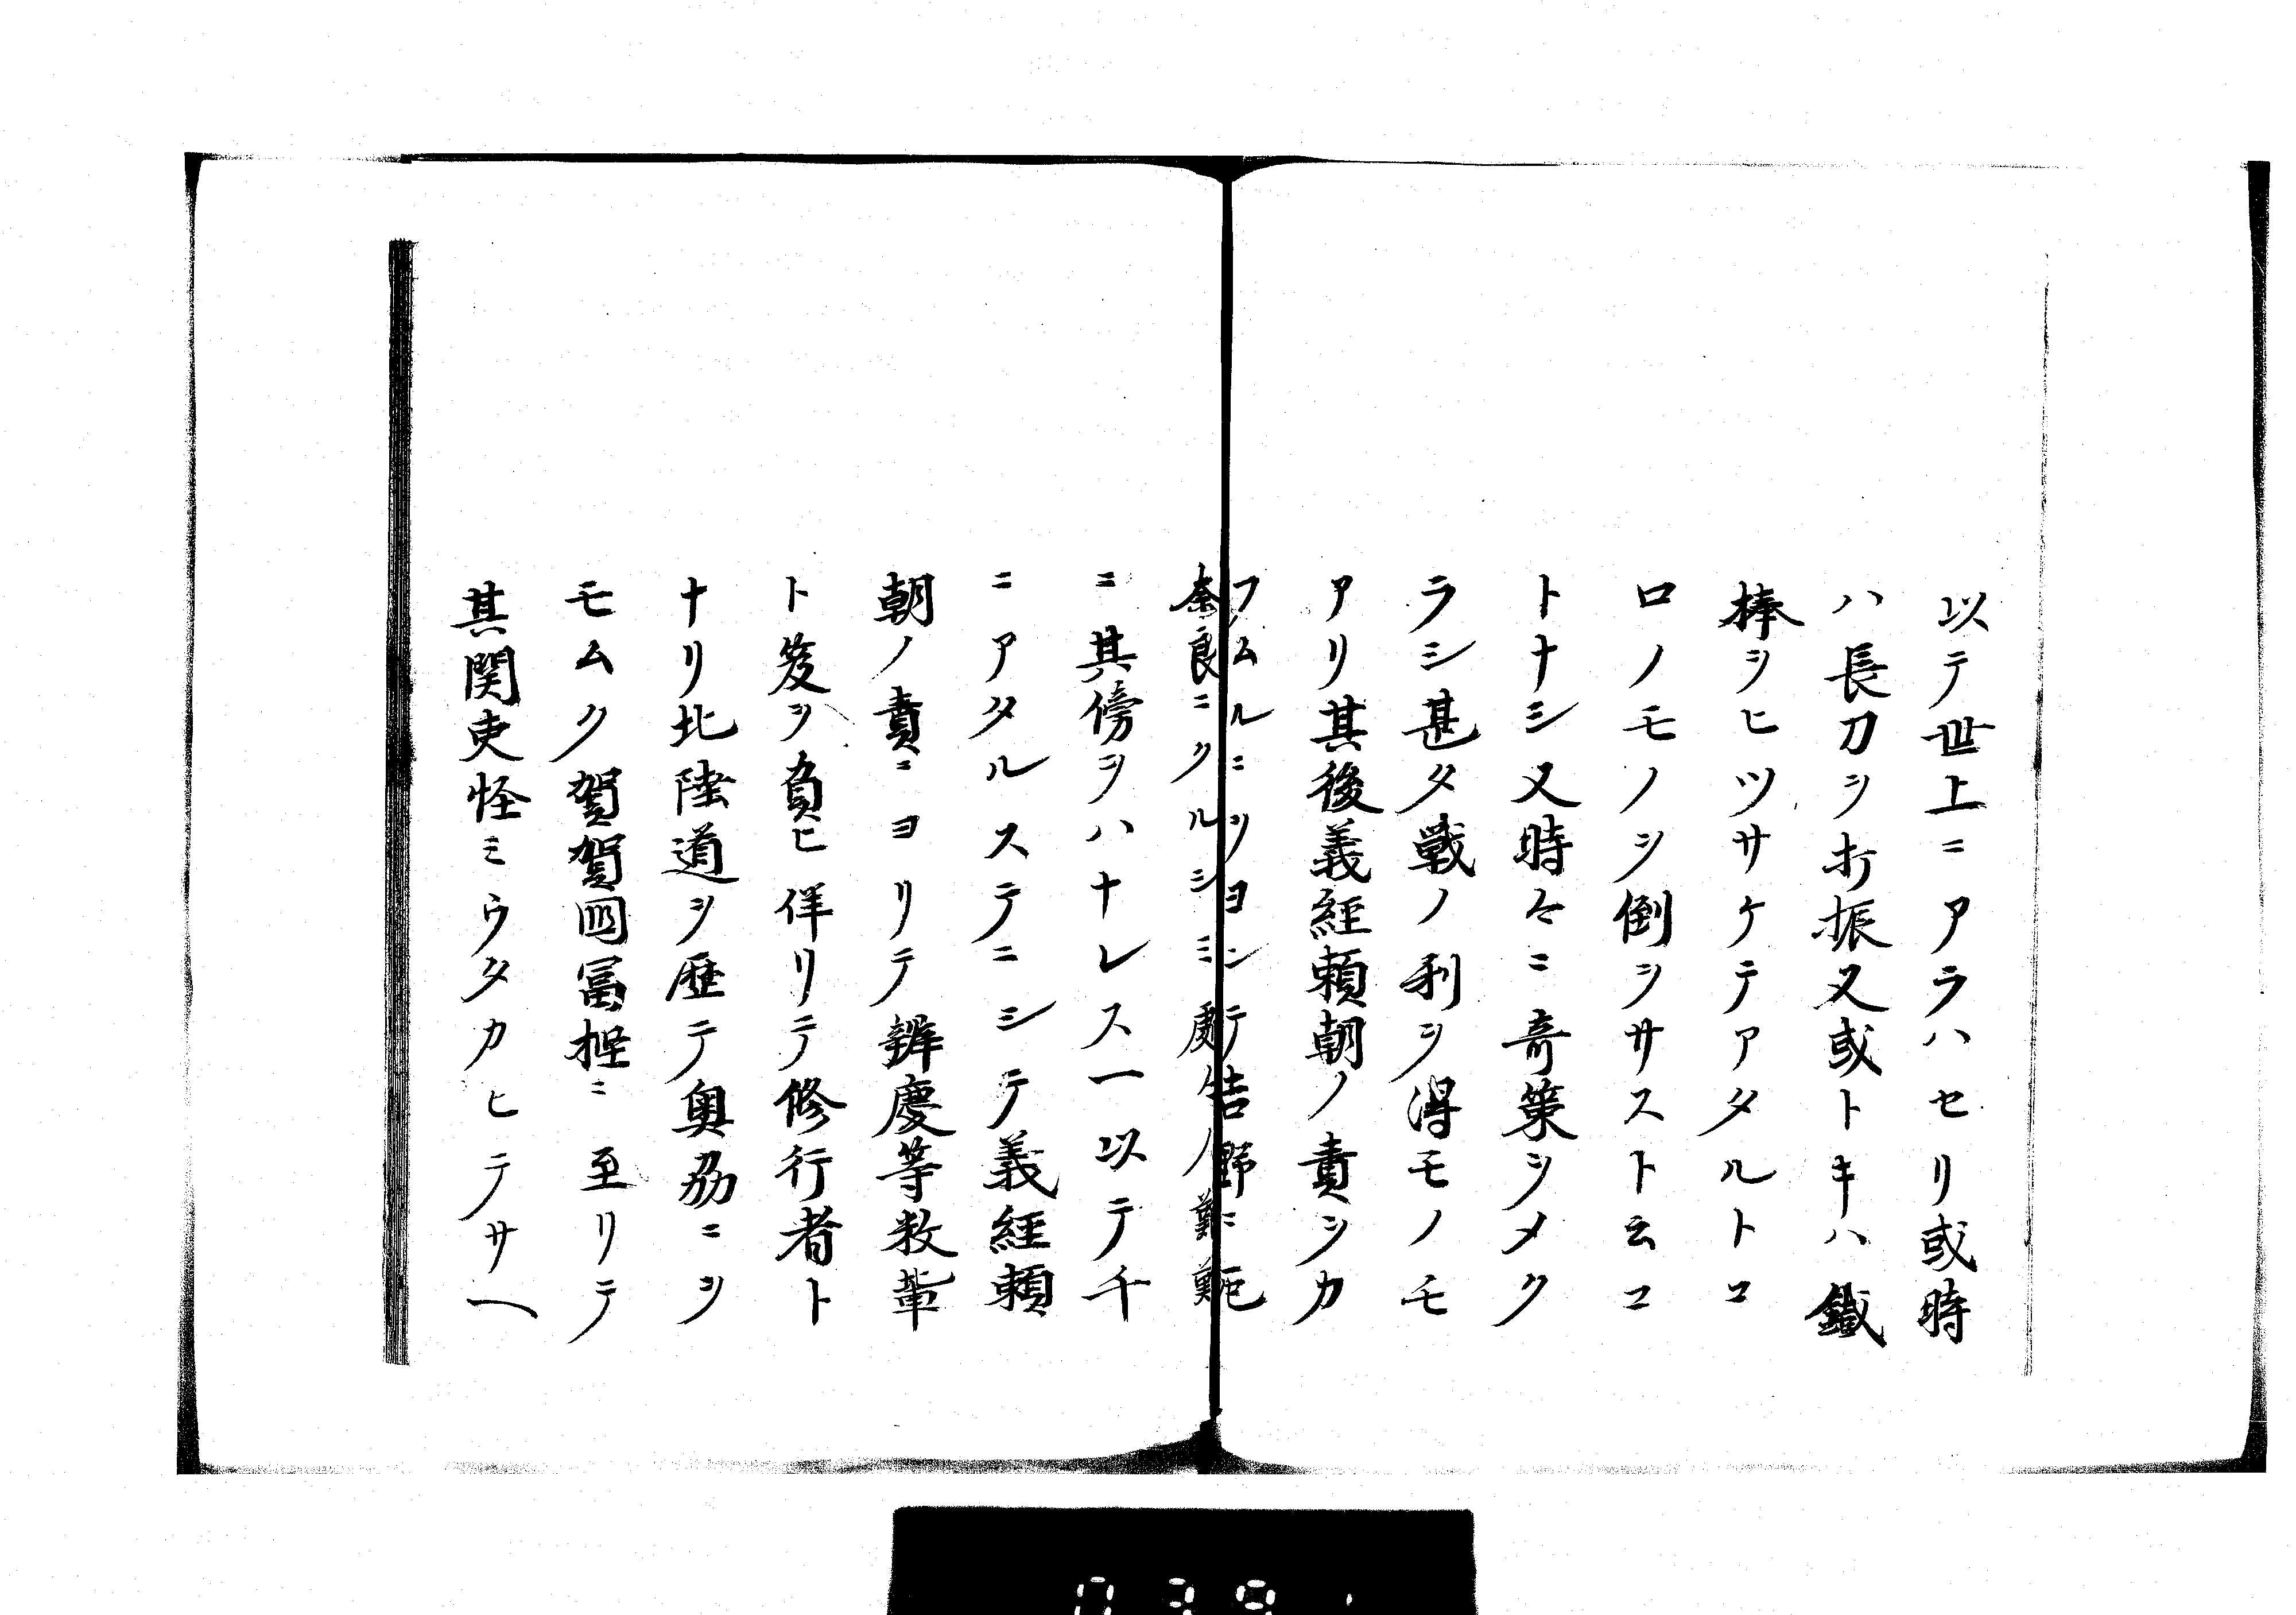 以テ世上ニアラハセリ或時
ハ長刀ヲ打振又或トキハ鐵
棒ヲヒツサケテアタルトコ
ロノモノヲ倒ヲサスト云コ
トナシ又時々ニ奇策ヲメク
ラシ甚タ戦ノ利ヲ得モノモ
アリ其後義経頼朝ノ責ヲカ
フムルニヲヨンテ吉野ニ
奈良ニクルシミ処ノ難
ニ其傍ヲハナレス一以テ千
ニアタルステニシテ義経頼
朝ノ責ニヨリテ辨慶等数輩
ト笈ヲ負ヒ佯リテ修行者ト
ナリ北陸道ヲ歴テ奥刕ニヲ
モムク賀賀國冨樫ニ至リテ
其関吏怪ミウタカヒテサヘ
039